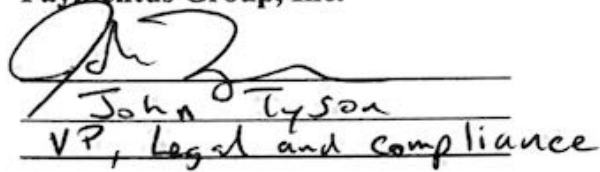 Paymentus Group, Inc.
John Tyson
VP, Legal and compliance